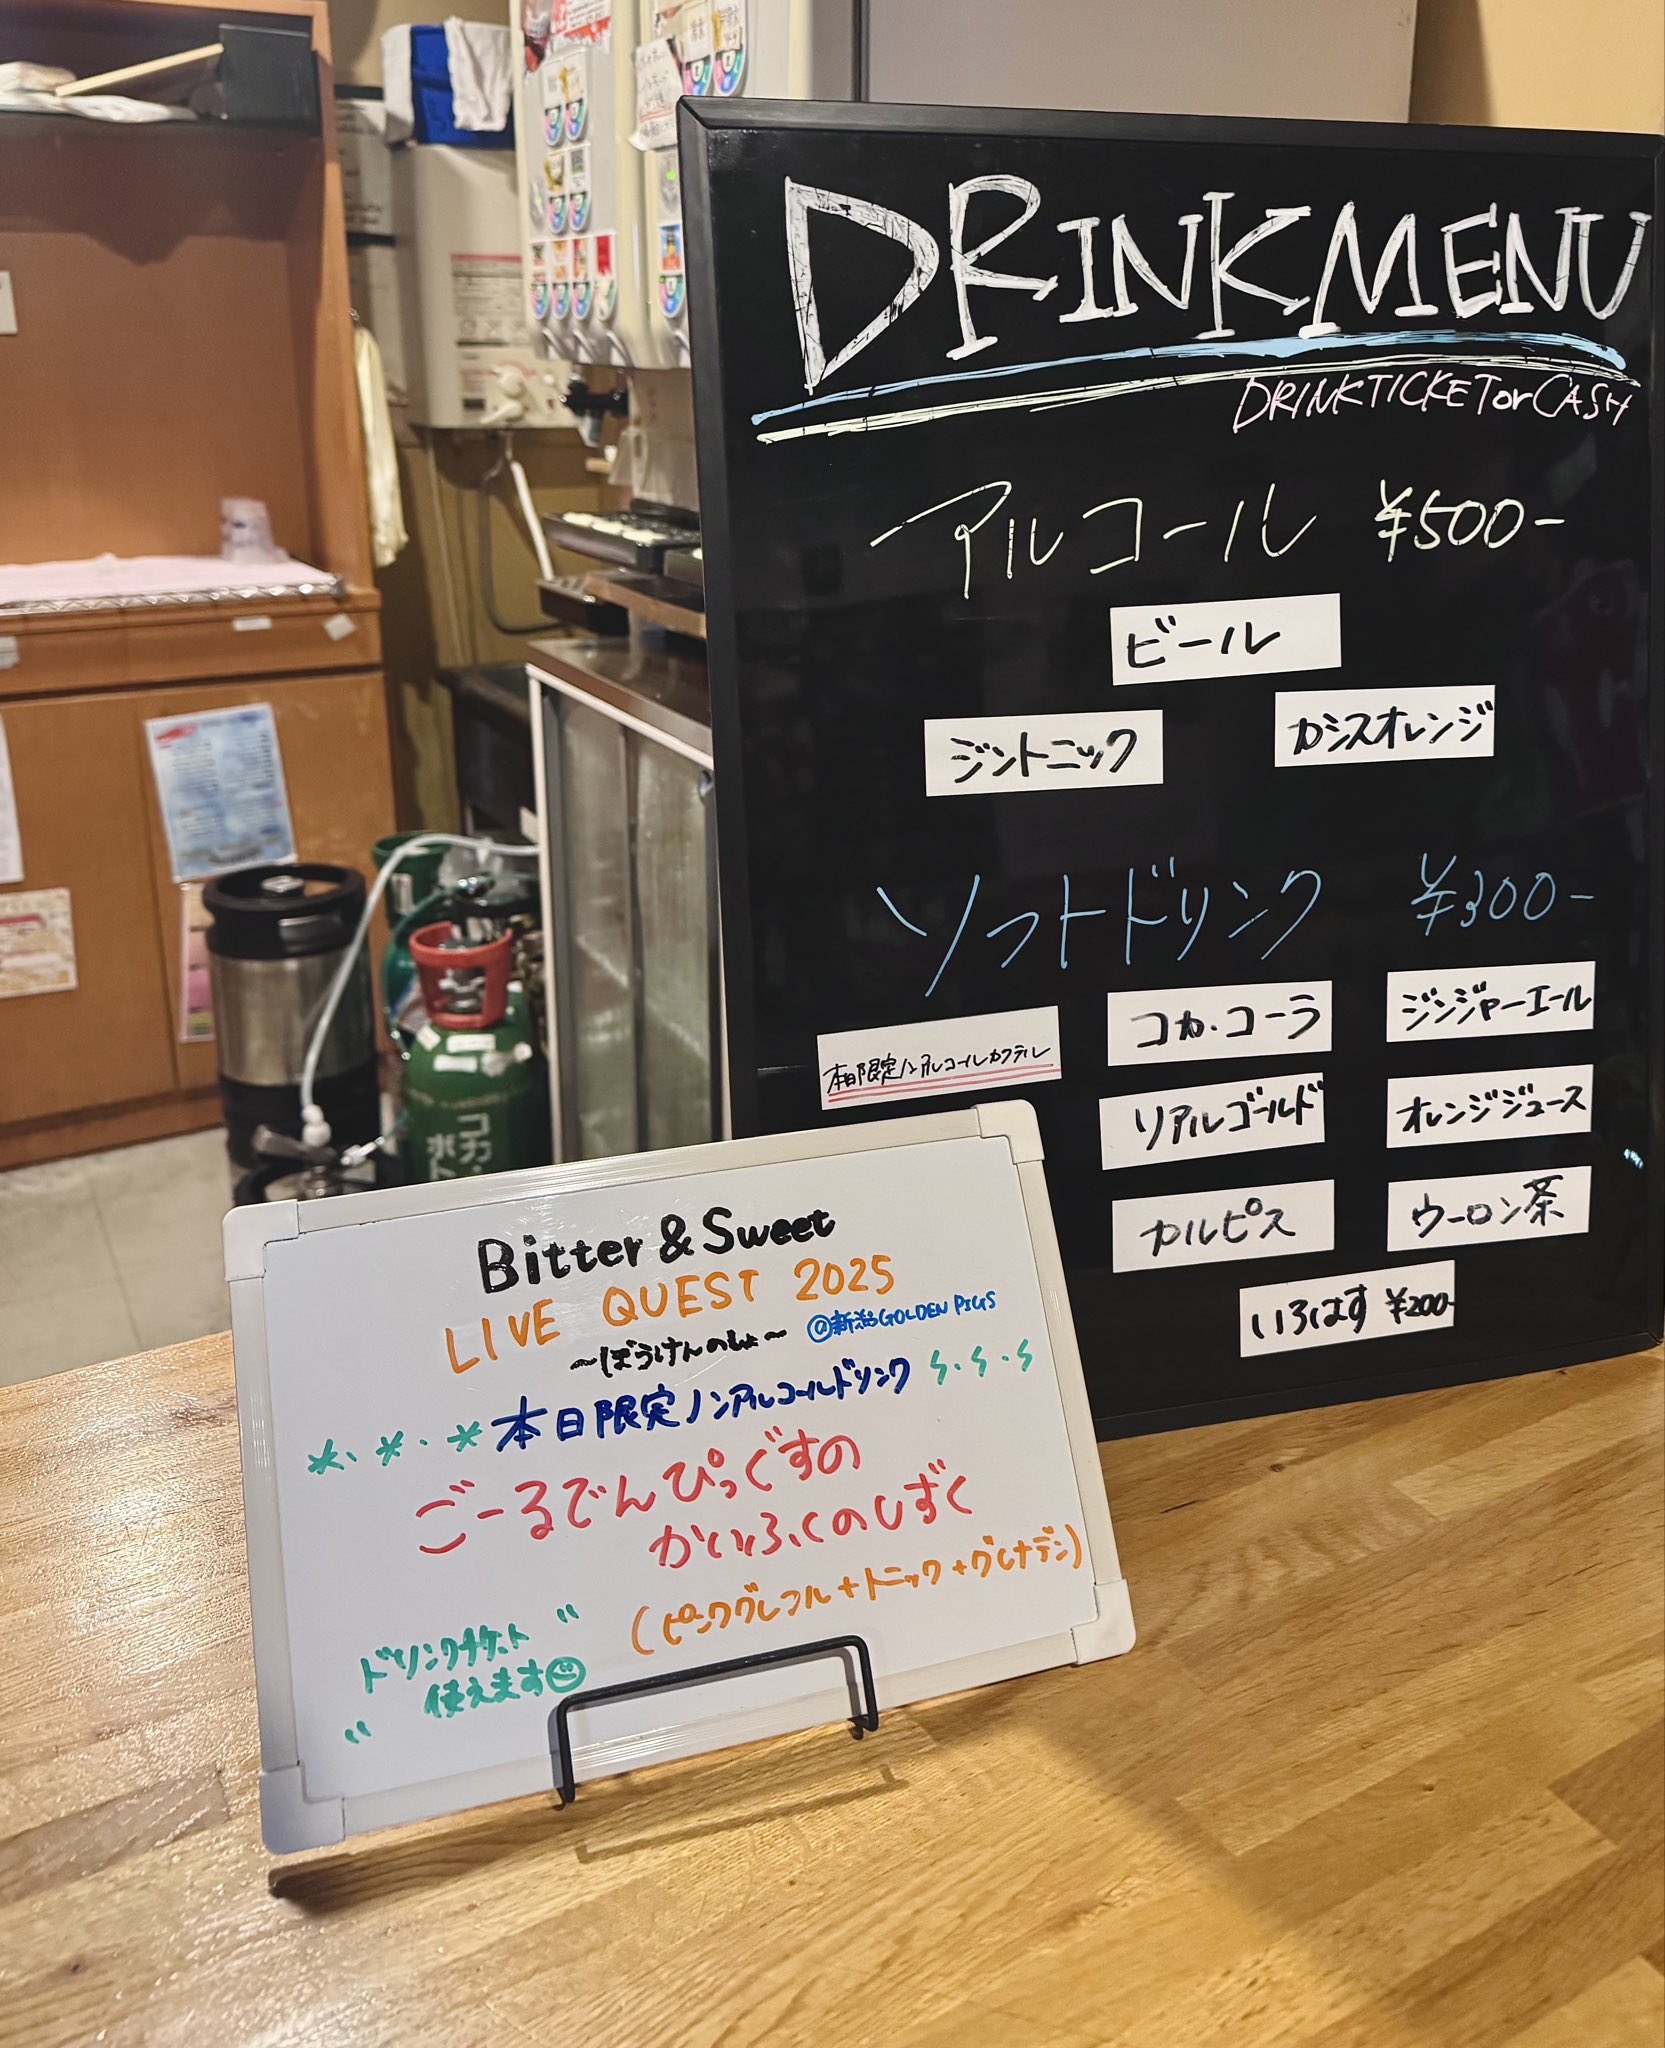 DRINK MENU
DRINK TICKET or CASH
アルコール ¥500-
ビール
ジントニック
カシスオレンジ
ソフトドリンク ¥300-
本日限定ノンアルコールカクテル
コカ・コーラ
ジンジャーエール
リアルゴールド
オレンジジュース
カルピス
ウーロン茶
いろはす ¥200-
Bitter & Sweet
LIVE QUEST 2025
〜ぼうけんのしょ〜 @新潟GOLDEN PIGS
本日限定ノンアルコールドリンク
ごーるでんぴっぐすの
かいふくのしずく
(ピンクグレフル+トニック+グレナデン)
"ドリンクチケット
使えます"
コカ・
ボト